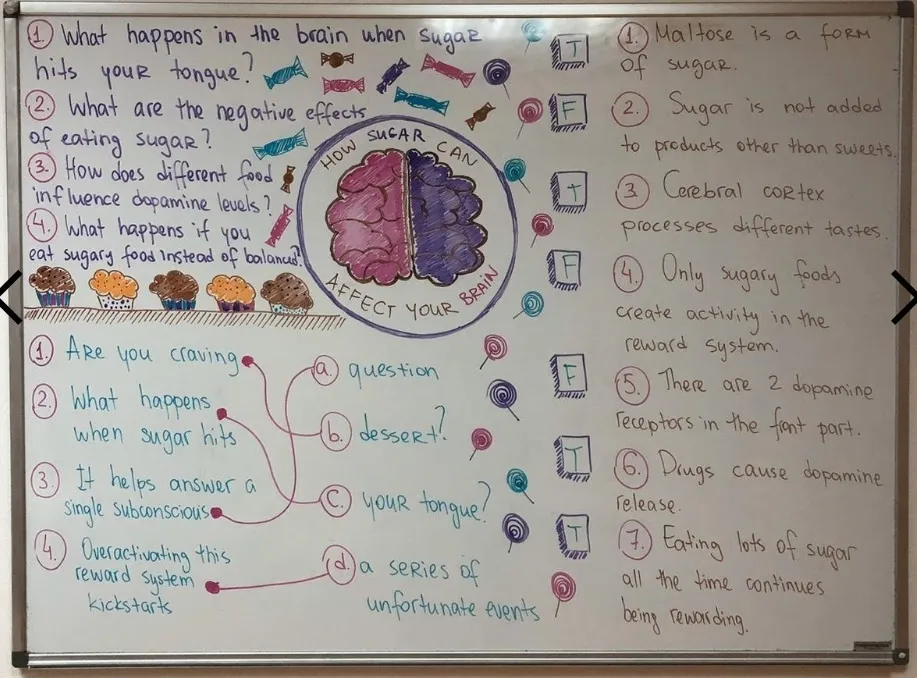 1. What happens in the brain when sugar
hits your tongue?
2. What are the negative effects
of eating sugar?
3. How does different food
influence dopamine levels?
4. What happens if you
eat sugary food instead of balanced?
HOW SUGAR CAN
AFFECT YOUR BRAIN
1. Are you craving
2. What happens
when sugar hits
3. It helps answer a
single subconscious
4. Overactivating this
reward system
kickstarts
a. question
b. dessert?
c. your tongue?
d. a series of
unfortunate events
T
F
T
F
F
T
T
1. Maltose is a form
of sugar.
2. Sugar is not added
to products other than sweets.
3 Cerebral cortex
processes different tastes.
4. Only sugary foods
create activity in the
reward system.
5. There are 2 dopamine
receptors in the font part.
6. Drugs cause dopamine
release.
7. Eating lots of sugar
all the time continues
being rewarding.